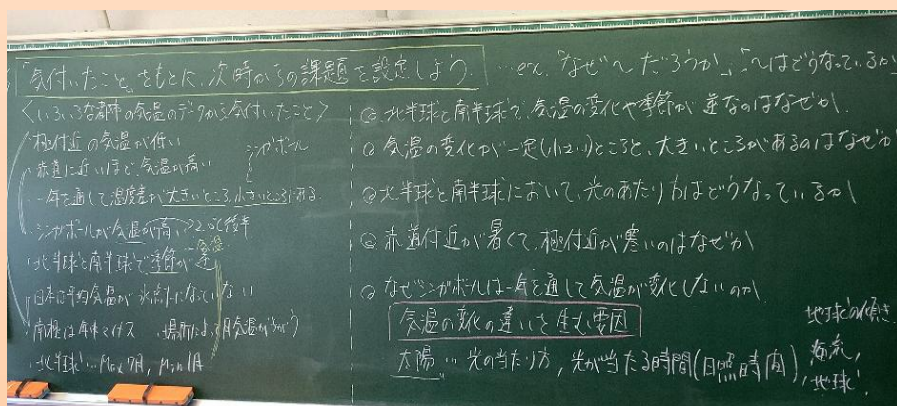 「気付いたこと」をもとに、次時からの課題を設定しよう。 …ex.「なぜ〜だろうか」「〜はどうなっているか
〈いろいろな都市の気温のデータから気付いたこと〉
極付近の気温が低い
シンガポール
赤道に近いほど、気温が高い
一年を通して温度差が大きいところ、小さいところがある
シンガポールが気温が高い→26℃後半
北半球と南半球で季節が逆
気温
日本は平均気温が氷点下になっていない
南極は年中マイナス 場所によって月気温がちがう
北半球…Max7月, Min1月
◎北半球と南半球で、気温の変化や季節が逆なのはなぜか
◎気温の変化が一定(小さい)ところと、大きいところがあるのはなぜか
◎北半球と南半球において、光のあたり方はどうなっているか
◎赤道付近が暑くて、極付近が寒いのはなぜか
◎なぜシンガポールは一年を通して気温が変化しないのか
気温の変化の違いを生む要因
太陽…光の当たり方, 光が当たる時間(日照時間),
地球の傾き
海流,
地球